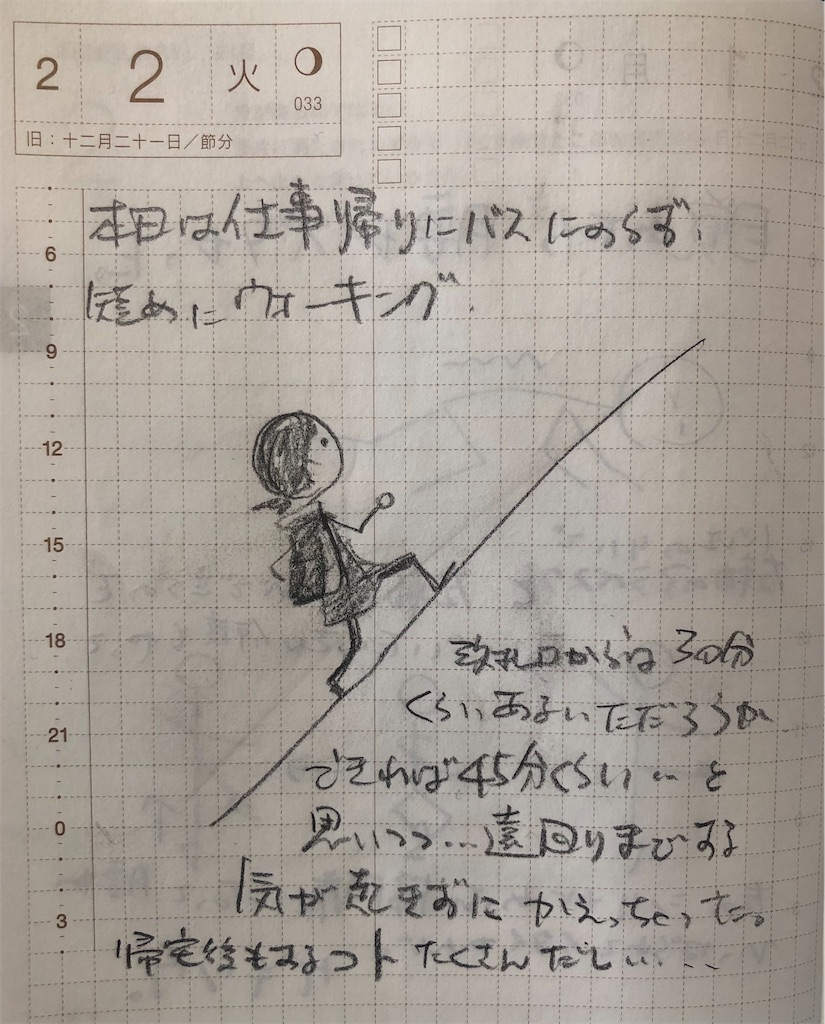 2 2 火
033
旧：十二月二十一日／節分
本日は仕事帰りにバスにのらず、
短めにウォーキング。
6
9
12
15
18
21
0
3
改札口からは30分
くらいあるいただろうか
できれば45分くらい…と
思いつつ…遠回りまでする
気が起きずにかえっちゃった。
帰宅後もするコトたくさんだしい…